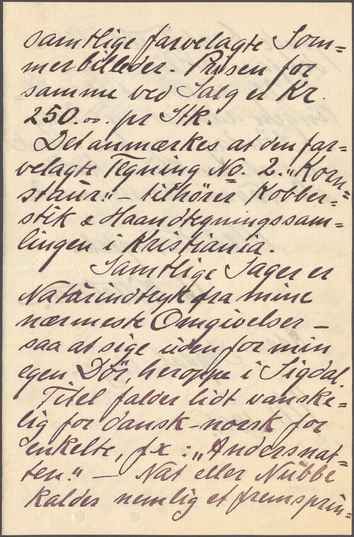 samtlige farvelagte Som=
merbilleder. Prisen for
samme ved Salg er Kr.
250.00. pr Stk.
Det anmærkes at den far=
velagte Tegning No. 2. „Korn=
staur." – tilhörer Kobber=
stik & Haandtegningssam=
lingen i Kristiania.
Samtlige Sager er
Naturindtryk fra mine
nærmeste Omgivelser –
saa at sige uden for min
egen Dör, heroppe i Sigdal.
Titel falder lidt vanske=
lig for dansk-norsk for
enkelte, f.x: „Andersnat=
ten." – Nat eller Nubbe
kaldes nemlig et fremsprin=